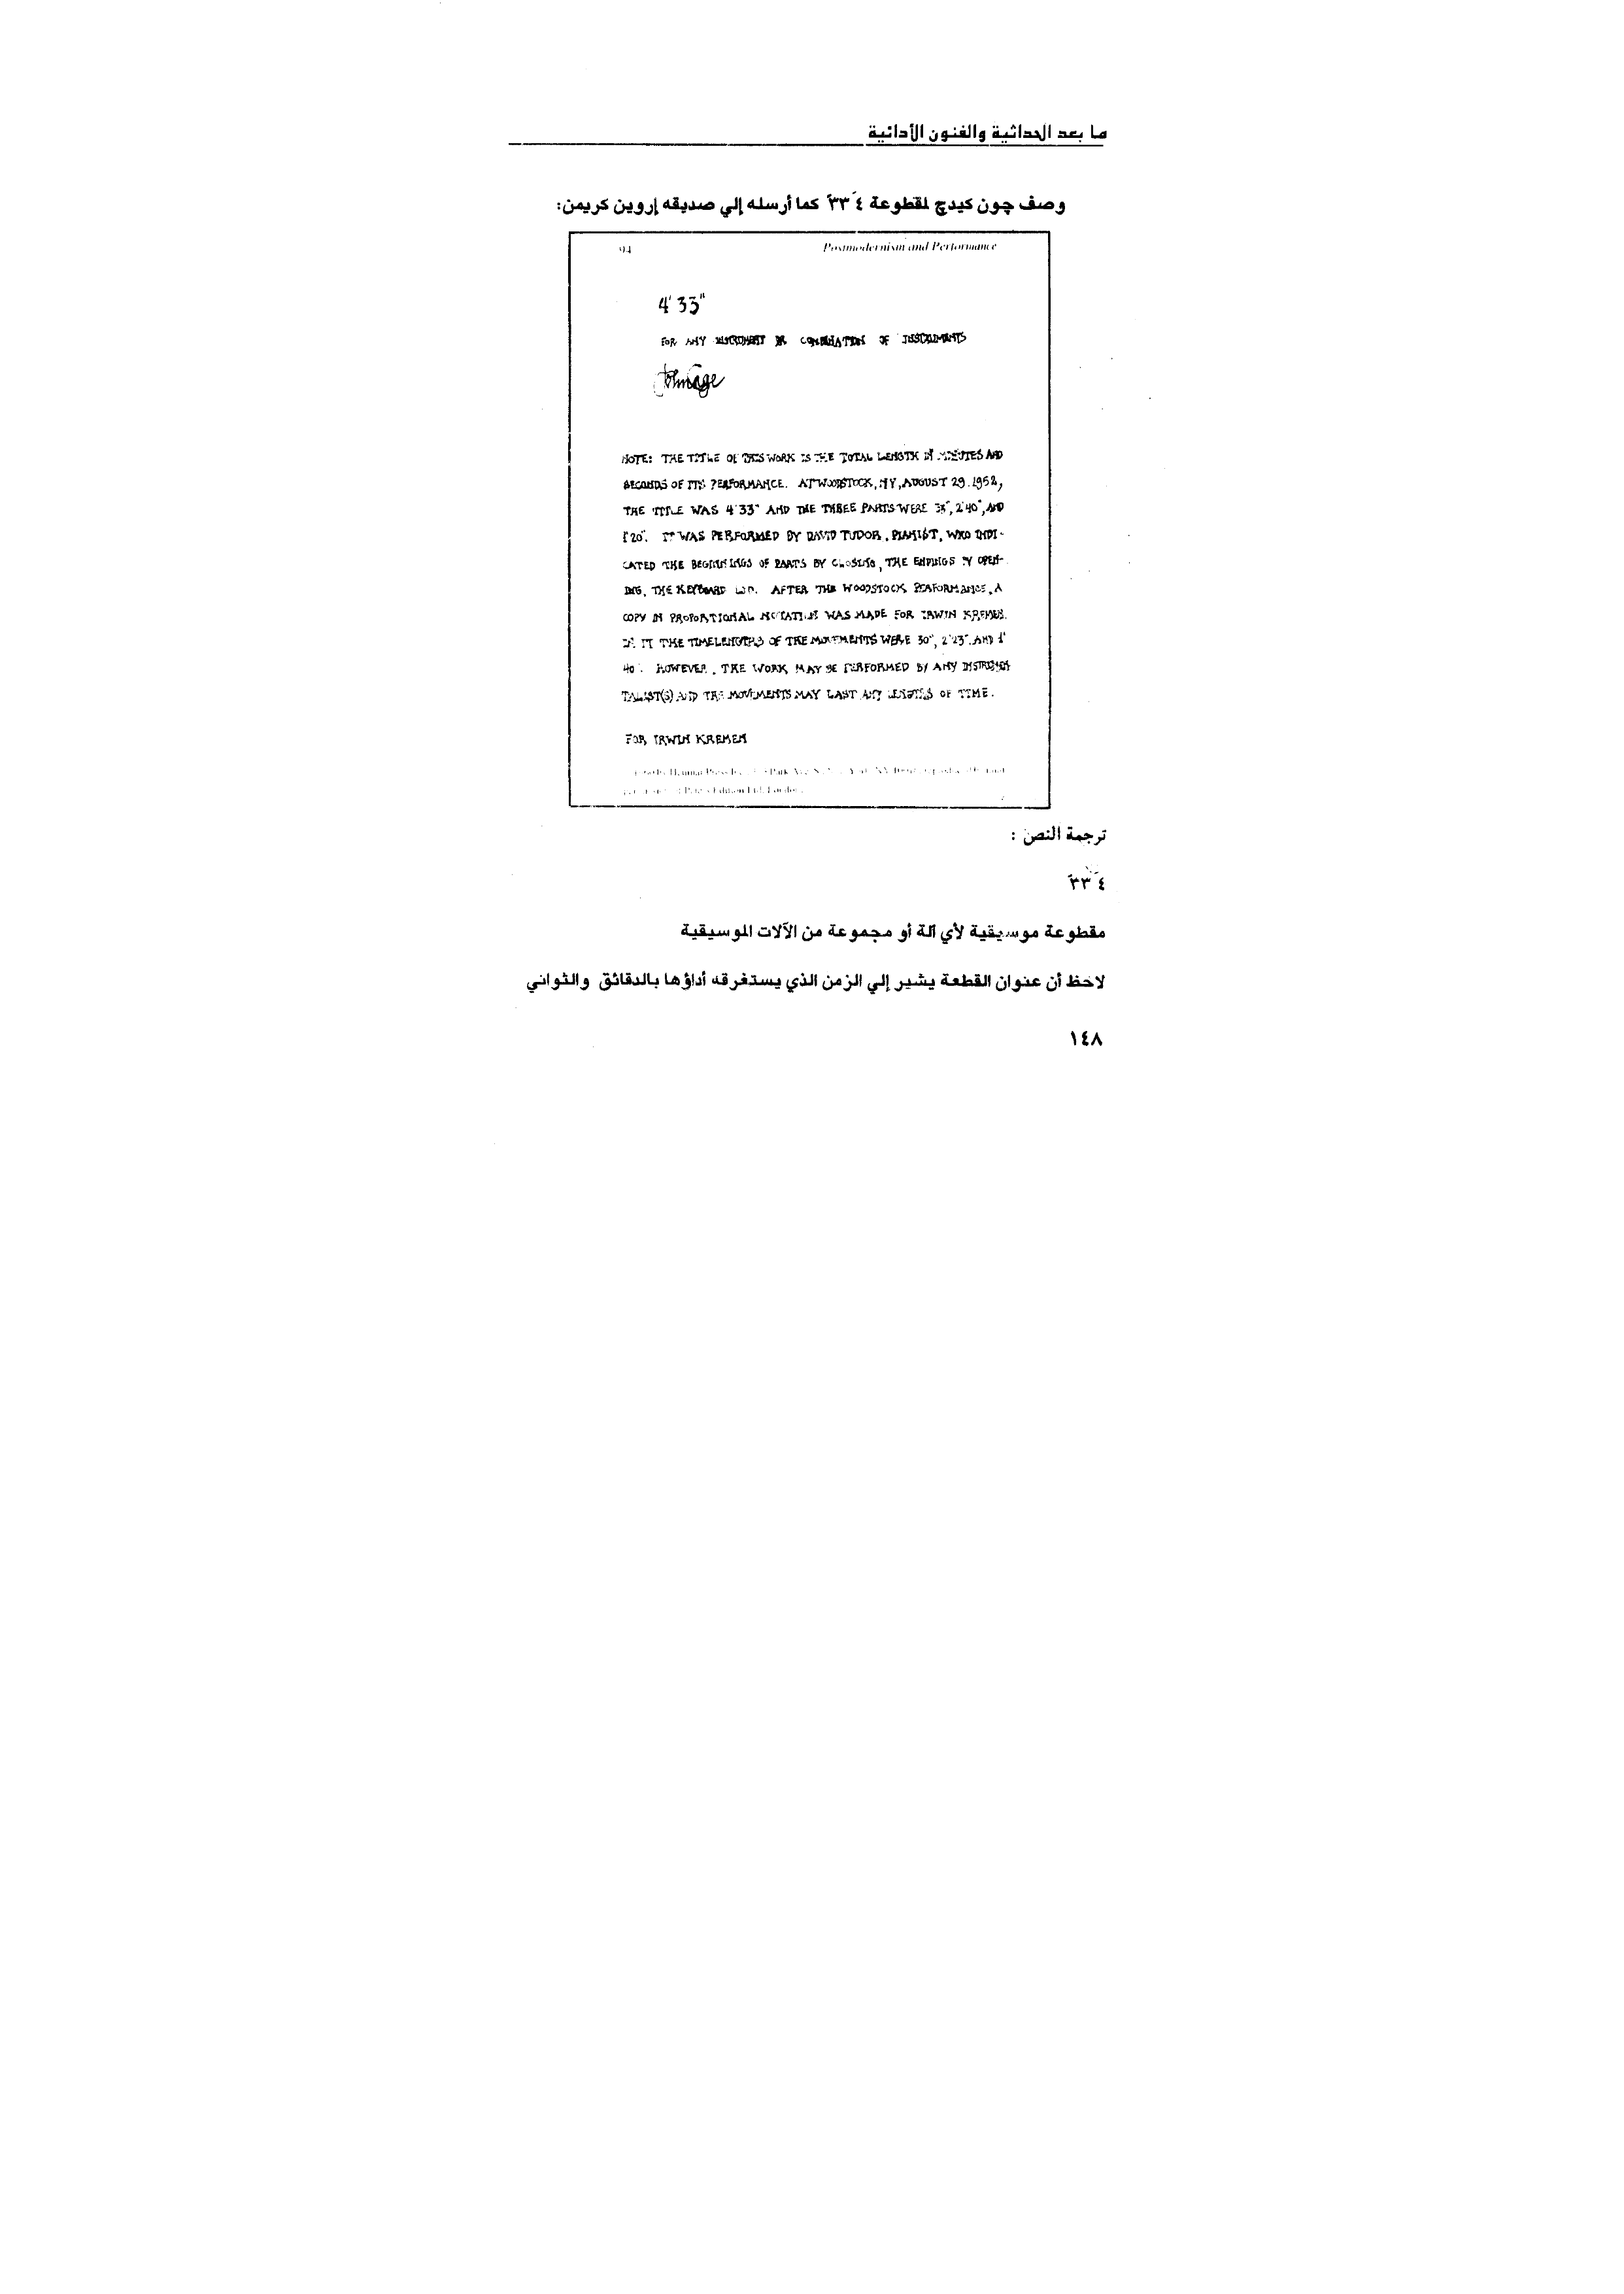 ما بعد الحداثية والفنون الأدائية
وصف چون كيدچ لمقطوعة ٤َ ٣٣ً كما أرسله إلي صديقه إروين كريمن:
94 Postmodernism and Performance
4'33"
FOR ANY INSTRUMENT OR COMBINATION OF INSTRUMENTS
John Cage
NOTE: THE TITLE OF THIS WORK IS THE TOTAL LENGTH IN MINUTES AND
SECONDS OF ITS PERFORMANCE. AT WOODSTOCK, NY, AUGUST 29, 1952,
THE TITLE WAS 4'33" AND THE THREE PARTS WERE 33", 2'40", AND
1'20". IT WAS PERFORMED BY DAVID TUDOR, PIANIST, WHO INDI-
CATED THE BEGINNINGS OF PARTS BY CLOSING, THE ENDINGS BY OPEN-
ING, THE KEYBOARD LID. AFTER THE WOODSTOCK PERFORMANCE, A
COPY IN PROPORTIONAL NOTATION WAS MADE FOR IRWIN KREMEN.
IN IT THE TIMELENGTHS OF THE MOVEMENTS WERE 30", 2'23", AND 1'
40". HOWEVER, THE WORK MAY BE PERFORMED BY ANY INSTRUMEN
TALIST(S) AND THE MOVEMENTS MAY LAST ANY LENGTHS OF TIME.
FOR IRWIN KREMEN
ترجمة النص :
٤َ ٣٣ً
مقطوعة موسيقية لأي آلة أو مجموعة من الآلات الموسيقية
لاحظ أن عنوان القطعة يشير إلي الزمن الذي يستغرقه أداؤها بالدقائق والثواني
١٤٨